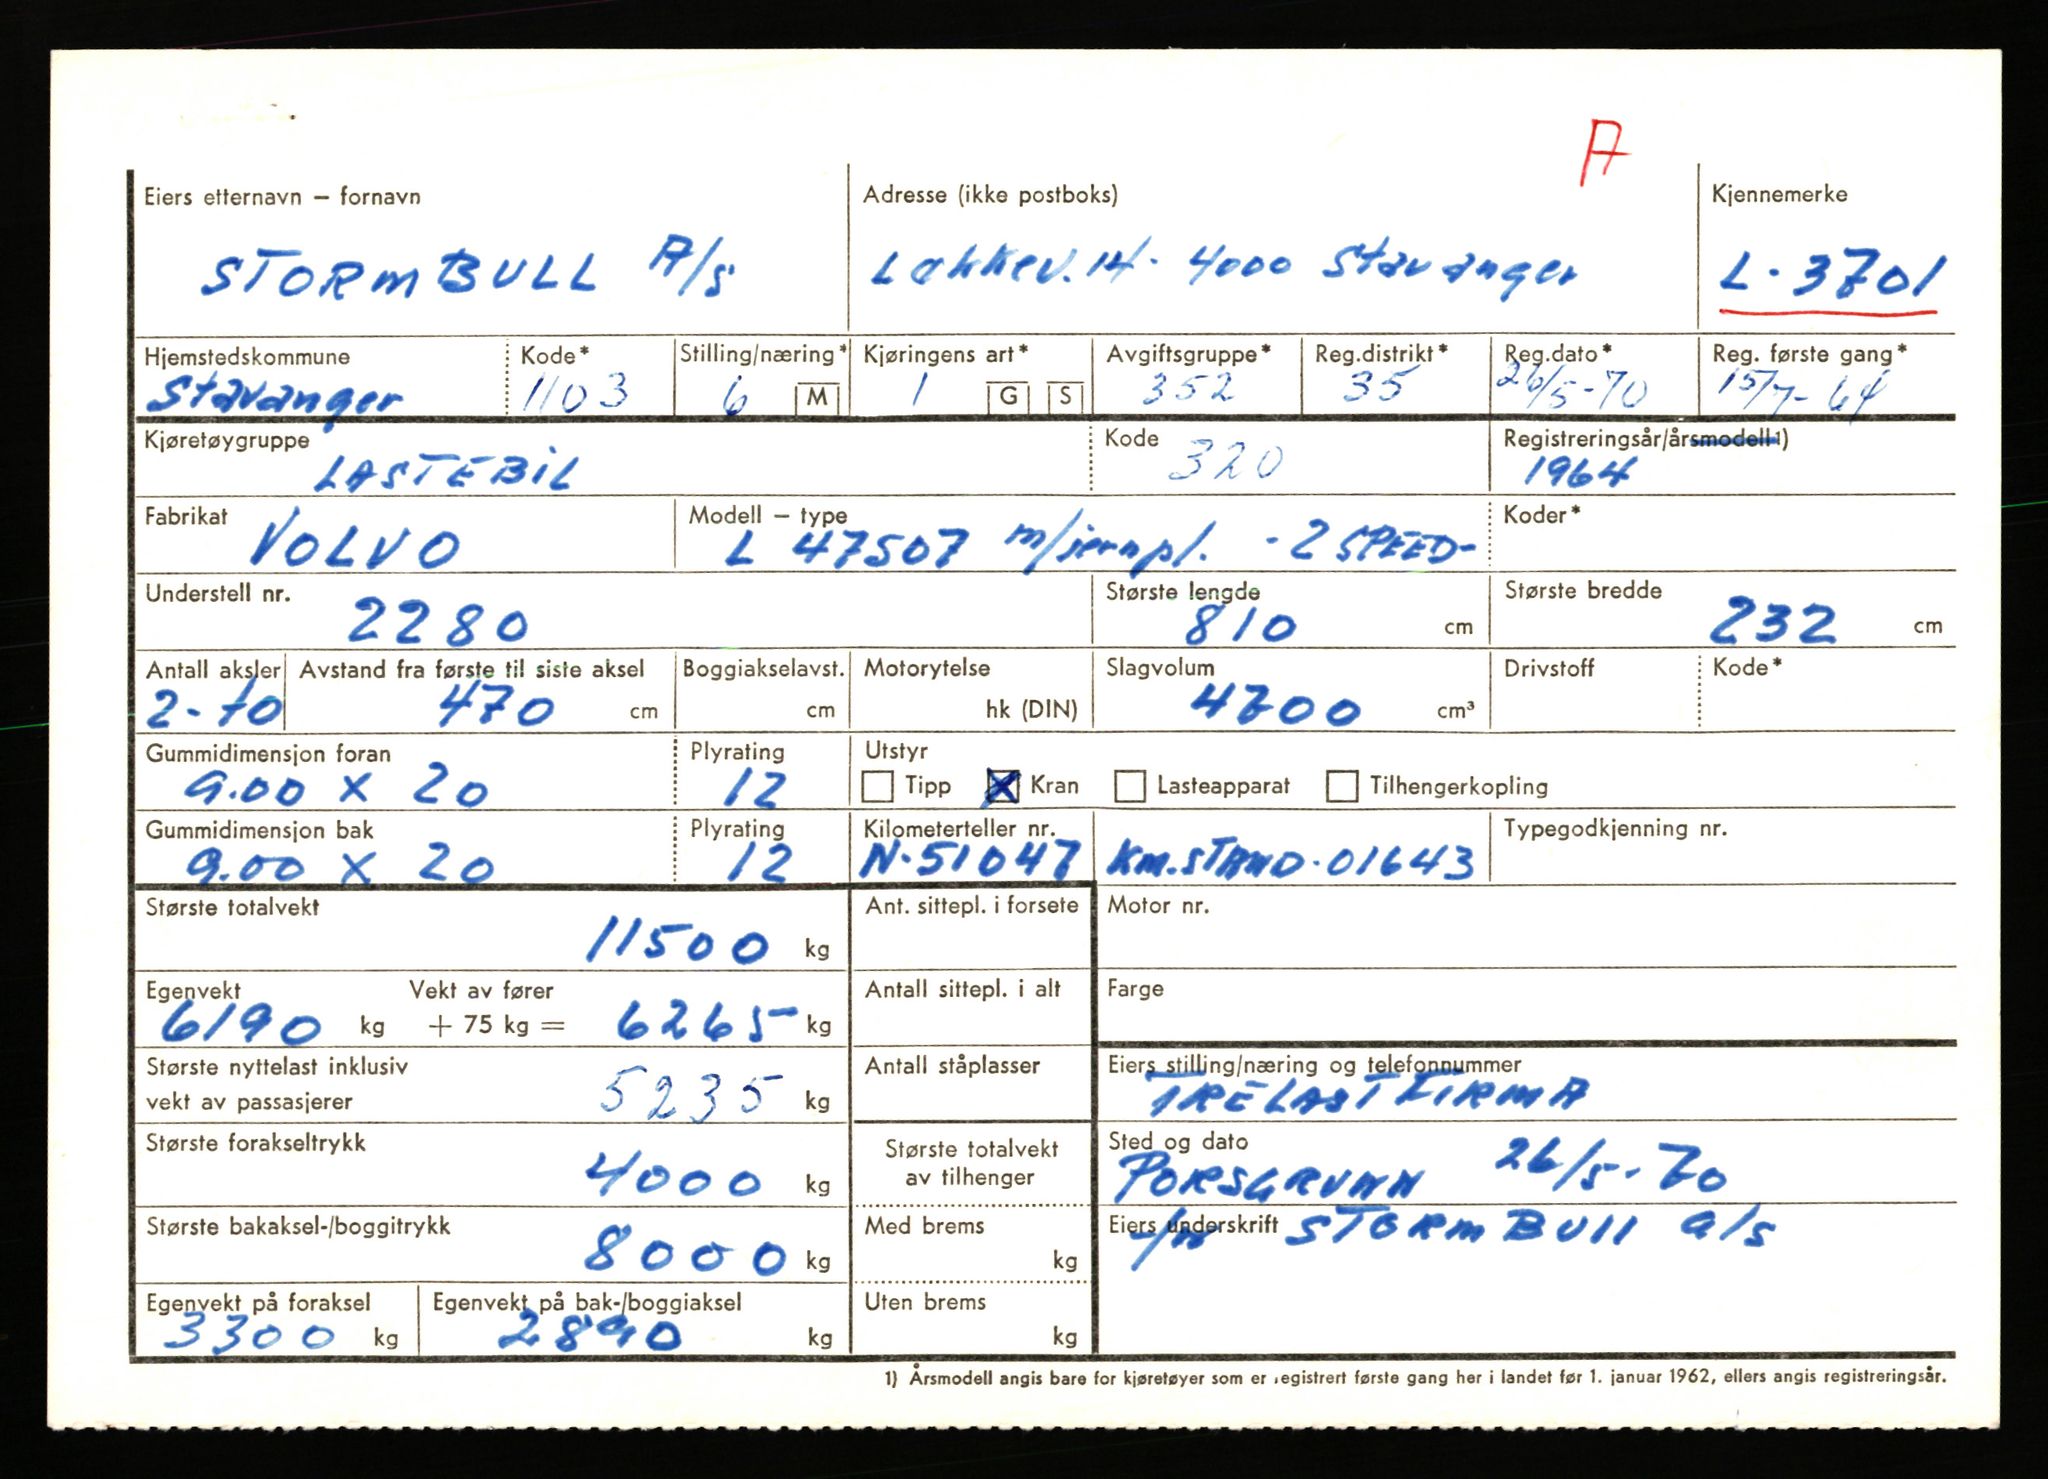 A
Eiers etternavn – fornavn Adresse (ikke postboks) Kjennemerke
STORMBULL A/S Løkkev. 14. 4000 Stavanger L-3701
Hjemstedskommune Kode* Stilling/næring* Kjøringens art* Avgiftsgruppe* Reg.distrikt* Reg.dato* Reg. første gang*
Stavanger 1103 6 M 1 G S 352 35 26/5-70 15/7-64
Kjøretøygruppe Kode Registreringsår/årsmodell 1)
LASTEBIL 320 1964
Fabrikat Modell – type Koder*
VOLVO L 47507 m/jernpl. -2 SPEED-
Understell nr. Største lengde Største bredde
2280 810 cm 232 cm
Antall aksler Avstand fra første til siste aksel Boggiakselavst. Motorytelse Slagvolum Drivstoff Kode*
2-10 470 cm cm hk (DIN) 4700 cm³
Gummidimensjon foran Plyrating Utstyr
9.00 x 20 12 Tipp Kran Lasteapparat Tilhengerkopling
Gummidimensjon bak Plyrating Kilometerteller nr. Typegodkjenning nr.
9.00 x 20 12 N-51047 KM.STAND-01643
Største totalvekt Ant. sittepl. i forsete Motor nr.
11500 kg
Egenvekt Vekt av fører Antall sittepl. i alt Farge
6190 kg + 75 kg = 6265 kg
Største nyttelast inklusiv Antall ståplasser Eiers stilling/næring og telefonnummer
vekt av passasjerer 5235 kg TRELASTFIRMA
Største forakseltrykk Største totalvekt Sted og dato
4000 kg av tilhenger PORSGRUNN 26/5-70
Største bakaksel-/boggitrykk Med brems Eiers underskrift STORMBULL a/s
8000 kg kg
Egenvekt på foraksel Egenvekt på bak-/boggiaksel Uten brems
3300 kg 2890 kg kg
1) Årsmodell angis bare for kjøretøyer som er registrert første gang her i landet før 1. januar 1962, ellers angis registreringsår.